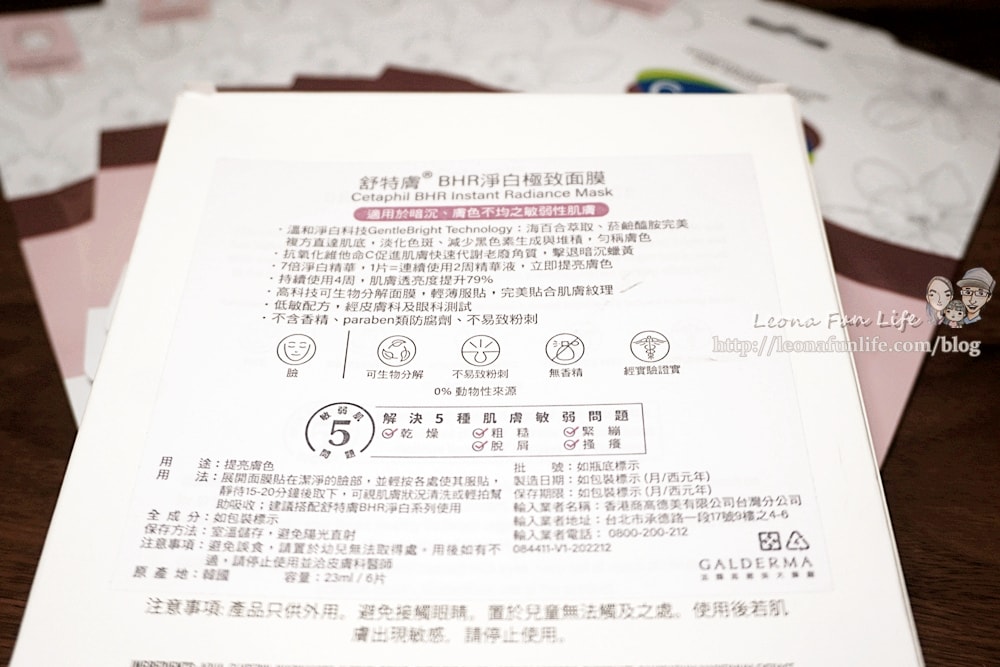 舒特膚® BHR淨白極致面膜
Cetaphil BHR Instant Radiance Mask
適用於暗沉、膚色不均之敏弱性肌膚
・溫和淨白科技GentleBright Technology：海百合萃取、菸鹼醯胺完美
複方直達肌底，淡化色斑、減少黑色素生成與堆積，勻稱膚色
・抗氧化維他命C促進肌膚快速代謝老廢角質，擊退暗沉蠟黃
・7倍淨白精華，1片=連續使用2周精華液，立即提亮膚色
・持續使用4周，肌膚透亮度提升79%
・高科技可生物分解面膜，輕薄服貼，完美貼合肌膚紋理
・低敏配方，經皮膚科及眼科測試
・不含香精、paraben類防腐劑、不易致粉刺
臉 可生物分解 不易致粉刺 無香精 經實驗證實
0% 動物性來源
敏弱肌 5 問題
解決5種肌膚敏弱問題
乾燥 粗糙 緊繃
脫屑 搔癢
用 途：提亮膚色
用 法：展開面膜貼在潔淨的臉部，並輕按各處使其服貼，
靜待15-20分鐘後取下，可視肌膚狀況清洗或輕拍幫
助吸收；建議搭配舒特膚BHR淨白系列使用
全 成 分：如包裝標示
保存方法：室溫儲存，避免陽光直射
注意事項：避免誤食，請置於幼兒無法取得處。用後如有不
適，請停止使用並洽皮膚科醫師
原 產 地：韓國 容量：23ml / 6片
批 號：如瓶底標示
製造日期：如包裝標示 (月/西元年)
保存期限：如包裝標示 (月/西元年)
輸入業者名稱：香港商高德美有限公司台灣分公司
輸入業者地址：台北市承德路一段17號9樓之4-6
輸入業者電話：0800-200-212
084411-V1-202212
GALDERMA
注意事項:產品只供外用。避免接觸眼睛。置於兒童無法觸及之處。使用後若肌
膚出現敏感，請停止使用。
Leona Fun Life
http://leonafunlife.com/blog